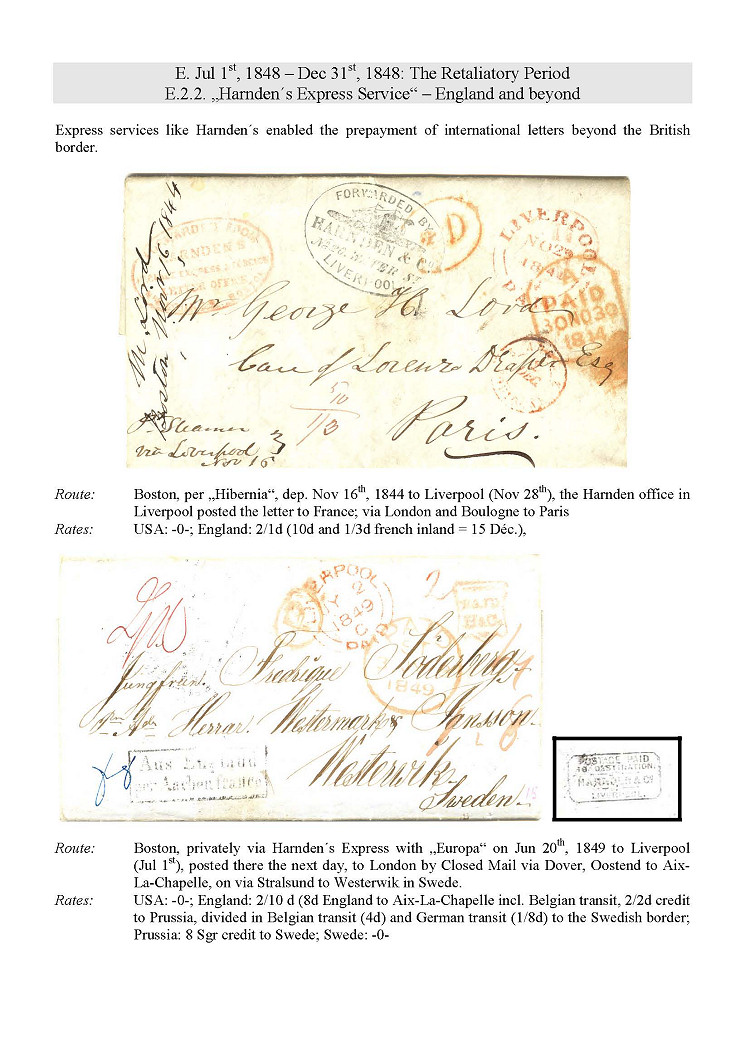 E. Jul 1st, 1848 – Dec 31st, 1848: The Retaliatory Period
E.2.2. „Harnden´s Express Service“ – England and beyond
Express services like Harnden´s enabled the prepayment of international letters beyond the British
border.
FORWARDED BY
HARNDEN & Co
LIVERPOOL
LIVERPOOL
NO 29
PAID
30 NO 30
1844
Boston Nov 16 1844
Mr George H. Lord
Care of Lorenzo Draper Esq
Paris.
5/10
1/3
pr Steamer
via Liverpool
Nov 16
3
Route: Boston, per „Hibernia“, dep. Nov 16th, 1844 to Liverpool (Nov 28th), the Harnden office in
Liverpool posted the letter to France; via London and Boulogne to Paris
Rates: USA: -0-; England: 2/1d (10d and 1/3d french inland = 15 Déc.),
LIVERPOOL
2
1849
C
PAID
2
PAID
H&Co
1849
Jungfrun. Fredrique Söderberg
Herrar. Westermark & Jansson
Westerwik
Sweden.
Aus England
per Aachen franco
POSTAGE PAID
TO DESTINATION.
HARNDEN & Co
LIVERPOOL.
Route: Boston, privately via Harnden´s Express with „Europa“ on Jun 20th, 1849 to Liverpool
(Jul 1st), posted there the next day, to London by Closed Mail via Dover, Oostend to Aix-
La-Chapelle, on via Stralsund to Westerwik in Swede.
Rates: USA: -0-; England: 2/10 d (8d England to Aix-La-Chapelle incl. Belgian transit, 2/2d credit
to Prussia, divided in Belgian transit (4d) and German transit (1/8d) to the Swedish border;
Prussia: 8 Sgr credit to Swede; Swede: -0-